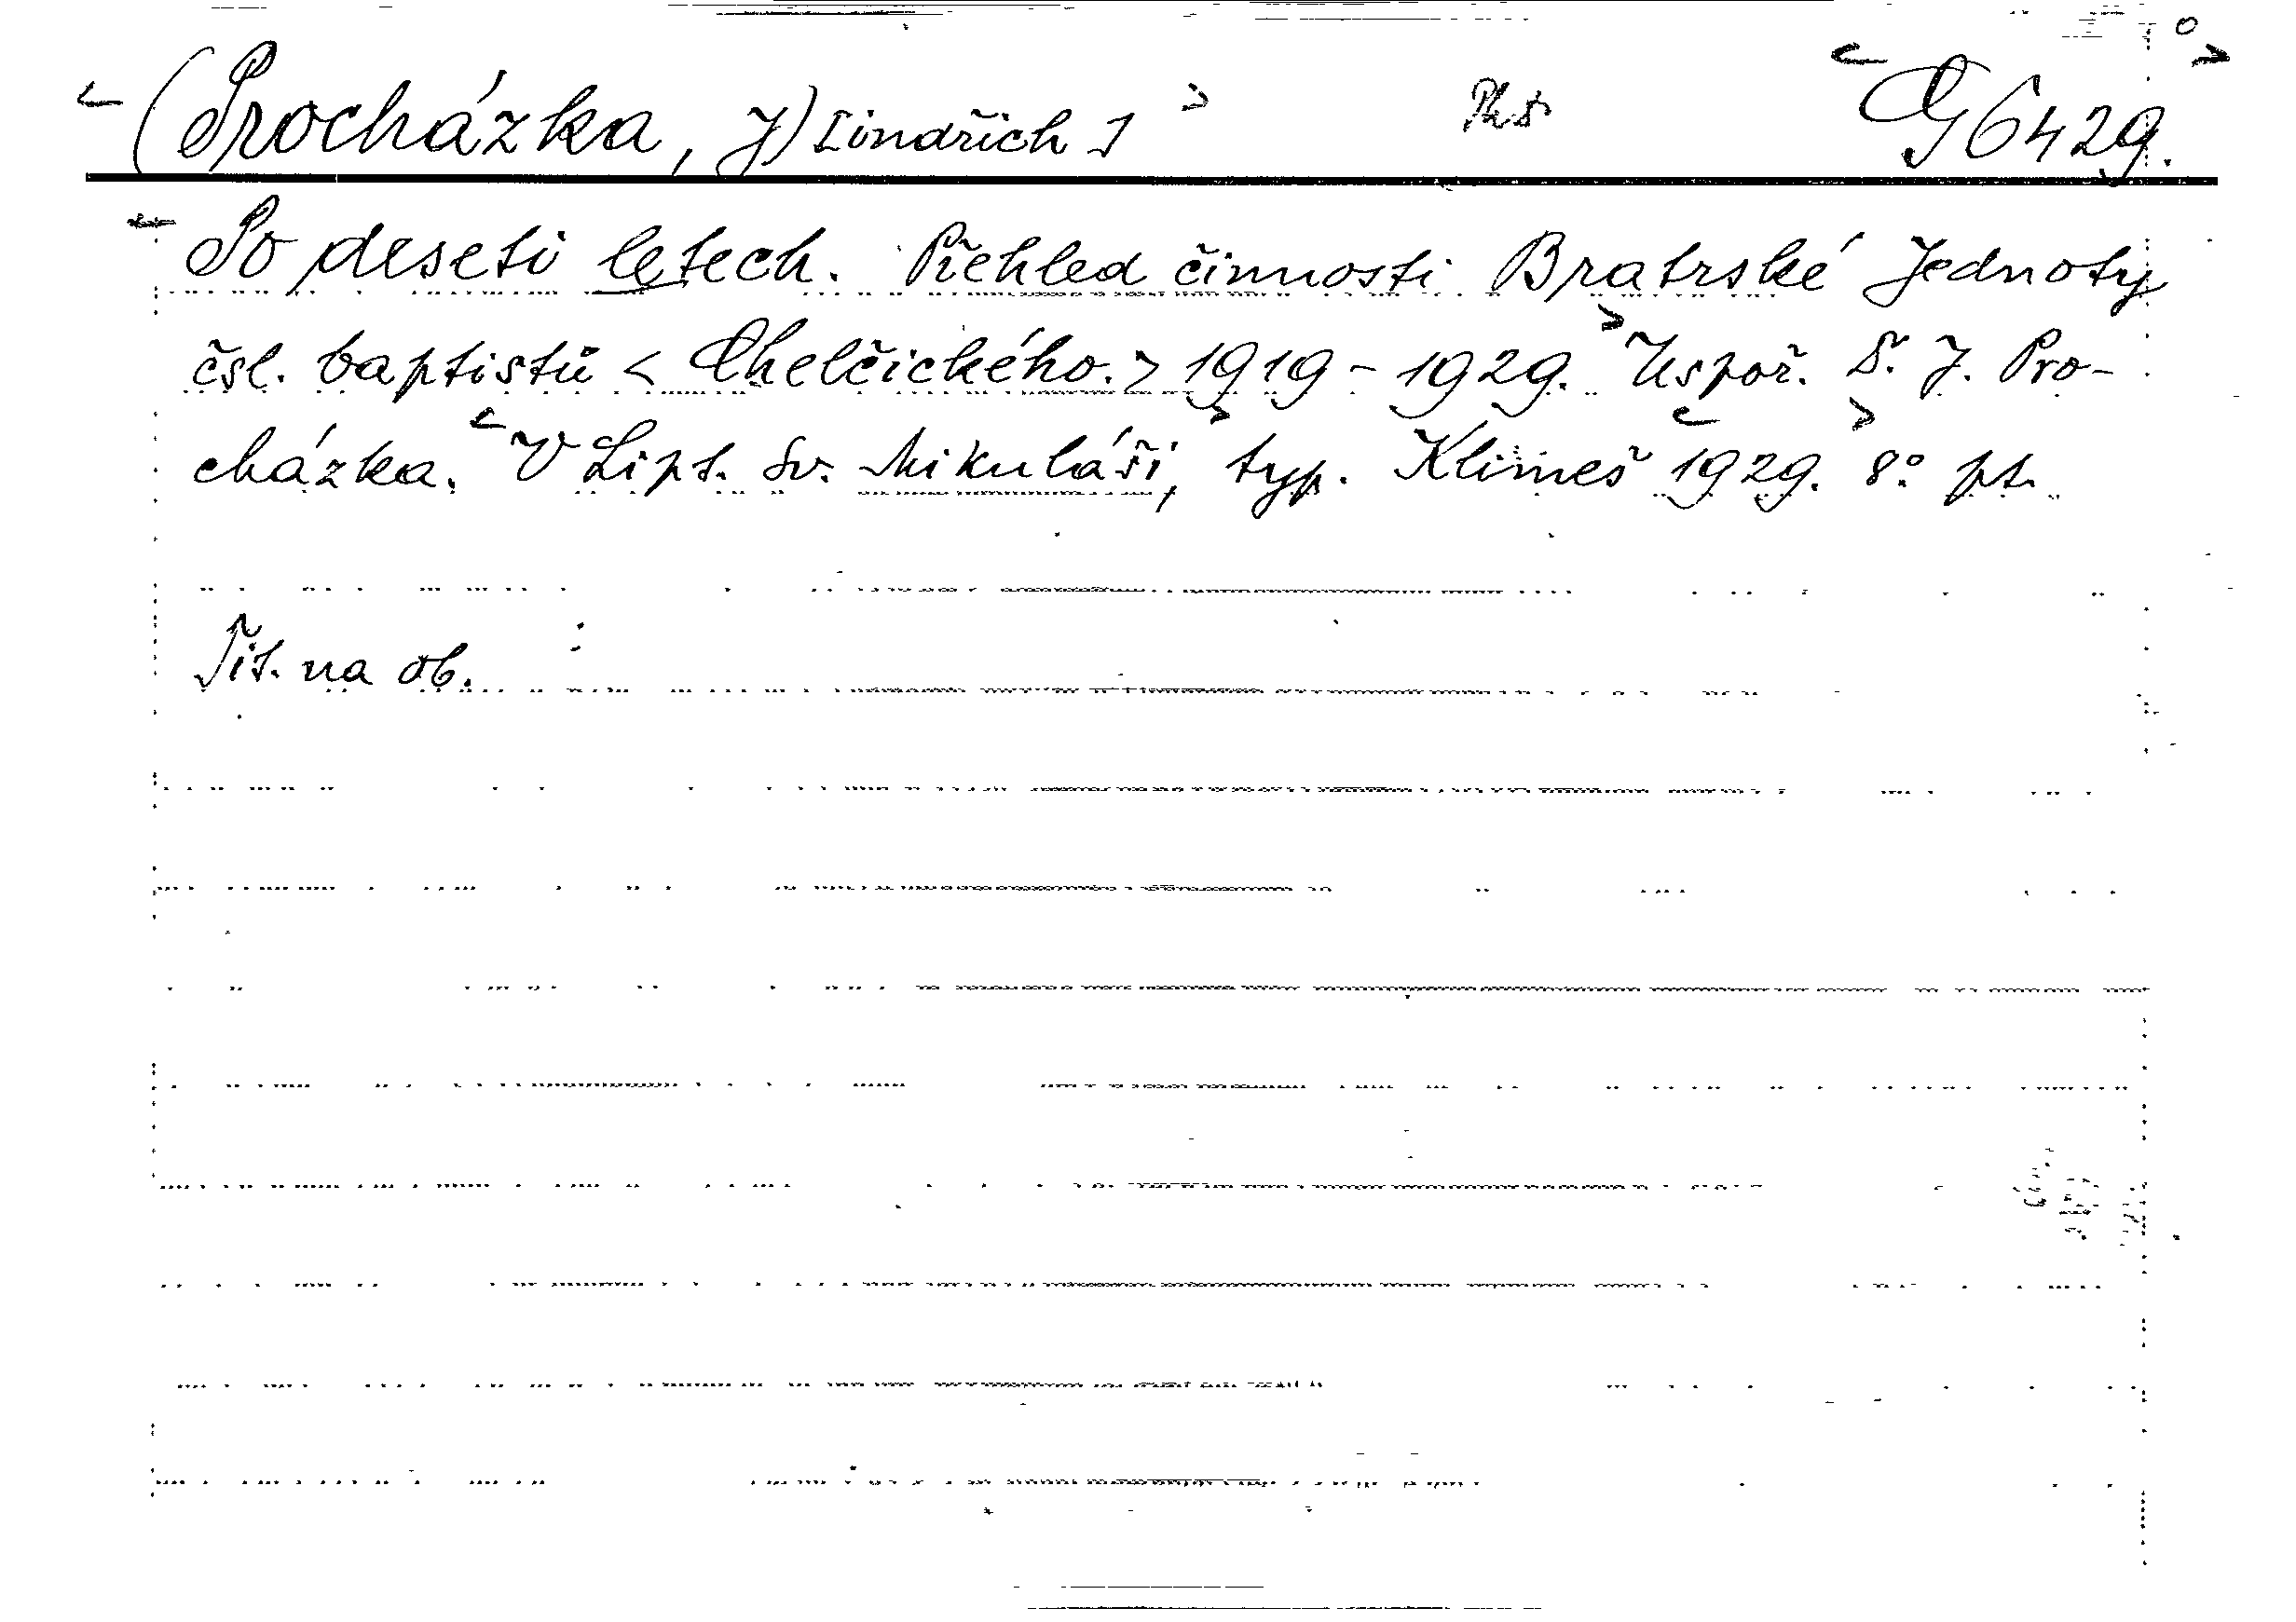 <(Procházka, J)[indřich]> <G 6429.>
<Po deseti letech. Přehled činnosti Bratrské Jednoty
čsl. baptistů <Chelčického.> 1919-1929.> Uspoř. J. Pro-
cházka. <V Lipt. Sv. Mikuláši,> typ. Klimeš <1929.> 8° pt.
Tit. na ob.